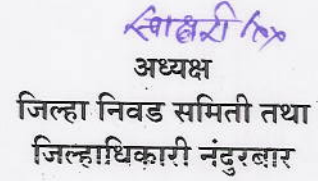 स्वाक्षरी
अध्यक्ष
जिल्हा निवड समिती तथा
जिल्हाधिकारी नंदुरबार